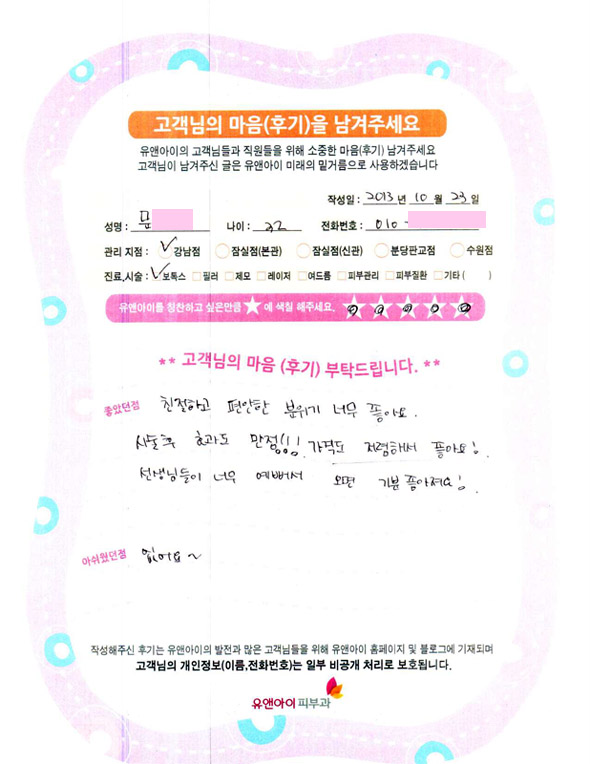 고객님의 마음(후기)을 남겨주세요
유앤아이의 고객님들과 직원들을 위해 소중한 마음(후기) 남겨주세요
고객님이 남겨주신 글은 유앤아이 미래의 밑거름으로 사용하겠습니다
작성일 : 2013 년 10 월 23 일
성명 : 문 나이 : 22 전화번호 : 010 -
관리 지점 : 강남점 잠실점(본관) 잠실점(신관) 분당판교점 수원점
진료.시술 : 보톡스 필러 제모 레이저 여드름 피부관리 피부질환 기타 ( )
유앤아이를 칭찬하고 싶은만큼 ★ 에 색칠 해주세요.
** 고객님의 마음 (후기) 부탁드립니다. **
좋았던점 친절하고 편안한 분위기 너무 좋아요.
시술후 효과도 만점!!! 가격도 저렴해서 좋아요!
선생님들이 너무 예뻐서 오면 기분 좋아져요!
아쉬웠던점 없어요~
작성해주신 후기는 유앤아이의 발전과 많은 고객님들을 위해 유앤아이 홈페이지 및 블로그에 기재되며
고객님의 개인정보(이름,전화번호)는 일부 비공개 처리로 보호됩니다.
유앤아이 피부과